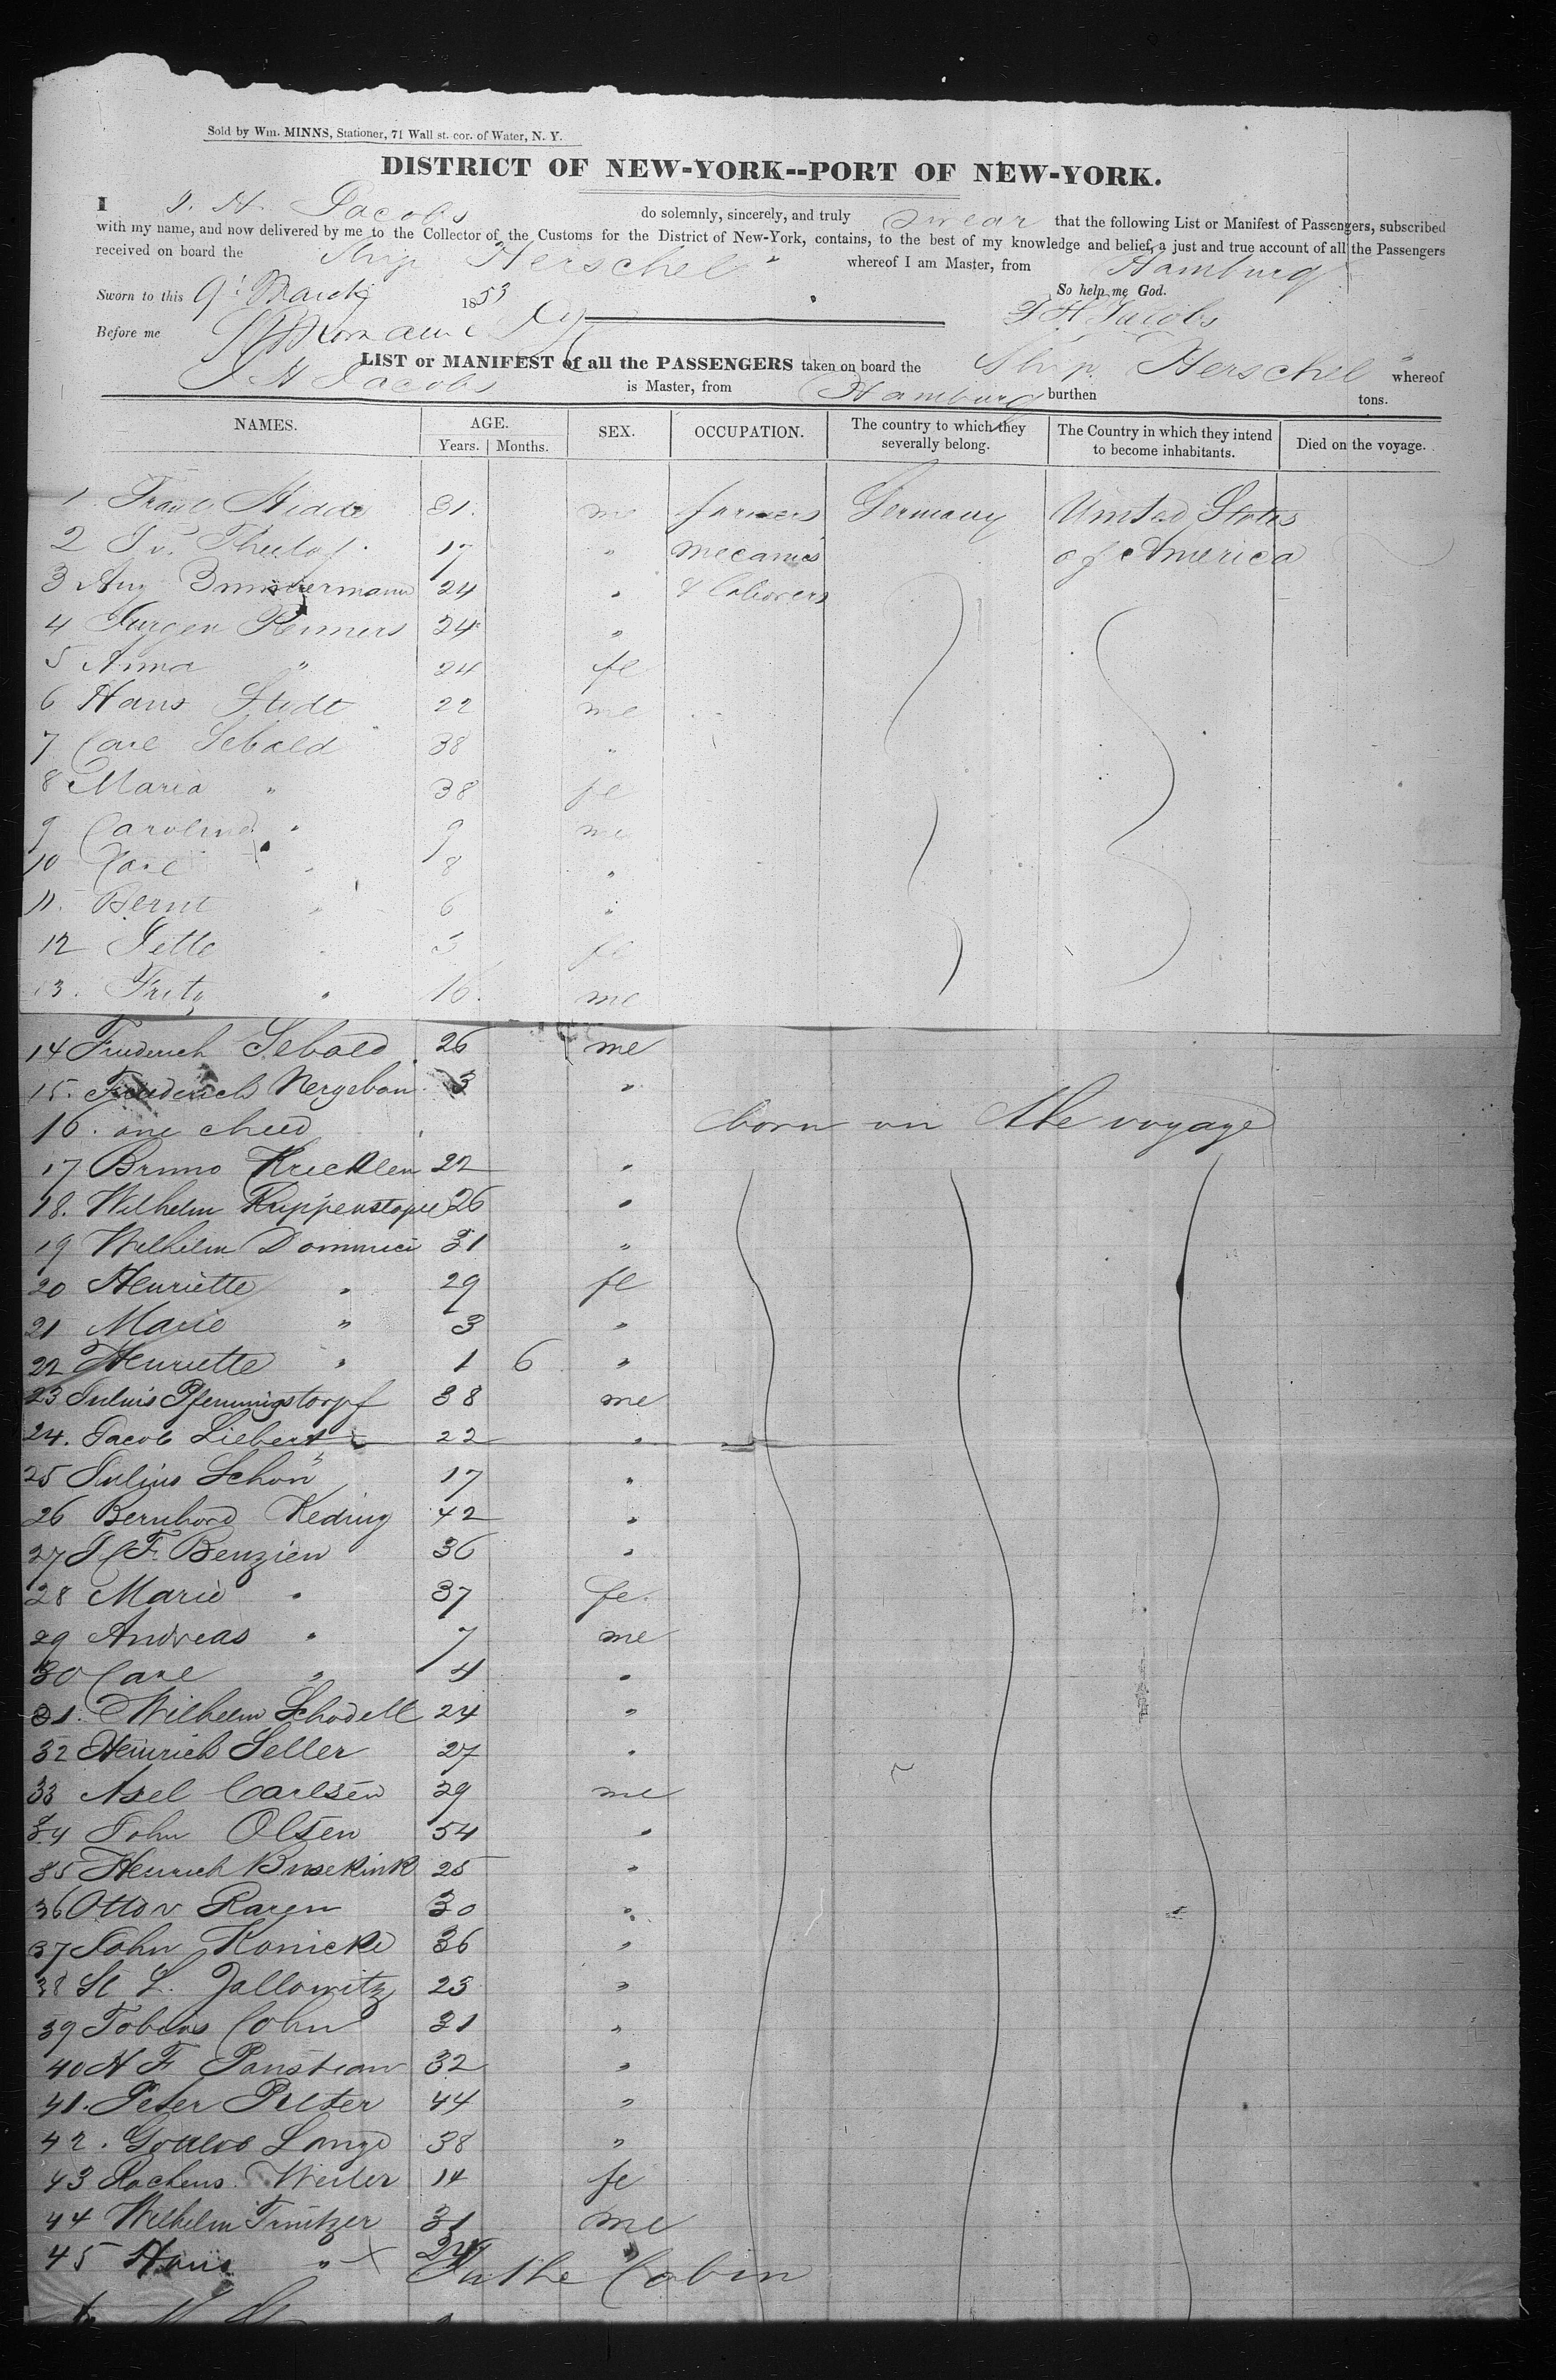 Sold by Wm. MINNS, Stationer, 71 Wall st. cor. of Water, N. Y.
DISTRICT OF NEW-YORK--PORT OF NEW-YORK.
I J. H. Jacobs do solemnly, sincerely, and truly swear that the following List or Manifest of Passengers, subscribed
with my name, and now delivered by me to the Collector of the Customs for the District of New-York, contains, to the best of my knowledge and belief, a just and true account of all the Passengers
received on board the Ship Herschel whereof I am Master, from Hamburg
Sworn to this 9 March 1853 So help me God.
Before me J H Jacobs
LIST or MANIFEST of all the PASSENGERS taken on board the Ship Herschel whereof
J H Jacobs is Master, from Hamburg burthen tons.
NAMES. AGE. Years. Months. SEX. OCCUPATION. The country to which they severally belong. The Country in which they intend to become inhabitants. Died on the voyage.
1 31. me farmers Germany United States
2 17 " mecanics of America
3 Aug 24 " & laborers
4 Jurgen Reimers 24 "
5 Anna " 24 fe
6 Hans Stedt 22 me
7 Carl Sebald 38 "
8 Maria " 38 fe
9 Caroline " 9 me
10 Carl " 8 "
11. Bernt " 6 "
12 Jette " 5 fe
13. Fritz " 10. me
14 Friederich Sebald 26 me
15. Friederich 3 "
16. one child born on the voyage
17 Bruno 22 "
18. Wilhelm 26 "
19 Wilhelm 31 "
20 Henriette " 29 fe
21 Marie " 3 "
22 Henriette " 1 6 "
23 Julius Pfenningstorpf 38 me
24. Jacob Liebert 22 "
25 Julius Schön 17 "
26 Bernhard Keding 42 "
27 J C F. Benzien 36 "
28 Marie " 37 fe.
29 Andreas " 7 me
30 Carl " 4 "
31. Wilhelm Schodell 24 "
32 Heinrich Seller 27 "
33 Axel Carlsen 29 me
34 John Olsen 54 "
35 Heinrich 25 "
36 Otto v 30 "
37 John Konicke 36 "
38 L. Jallowitz 23 "
39 Tobias Cohn 31 "
40 H F 32 "
41. Peter 44 "
42. Gottlob Lange 38 "
43 Weiler 14 fe
44 Wilhelm 31 me
45 Hans " "
In the Cabin